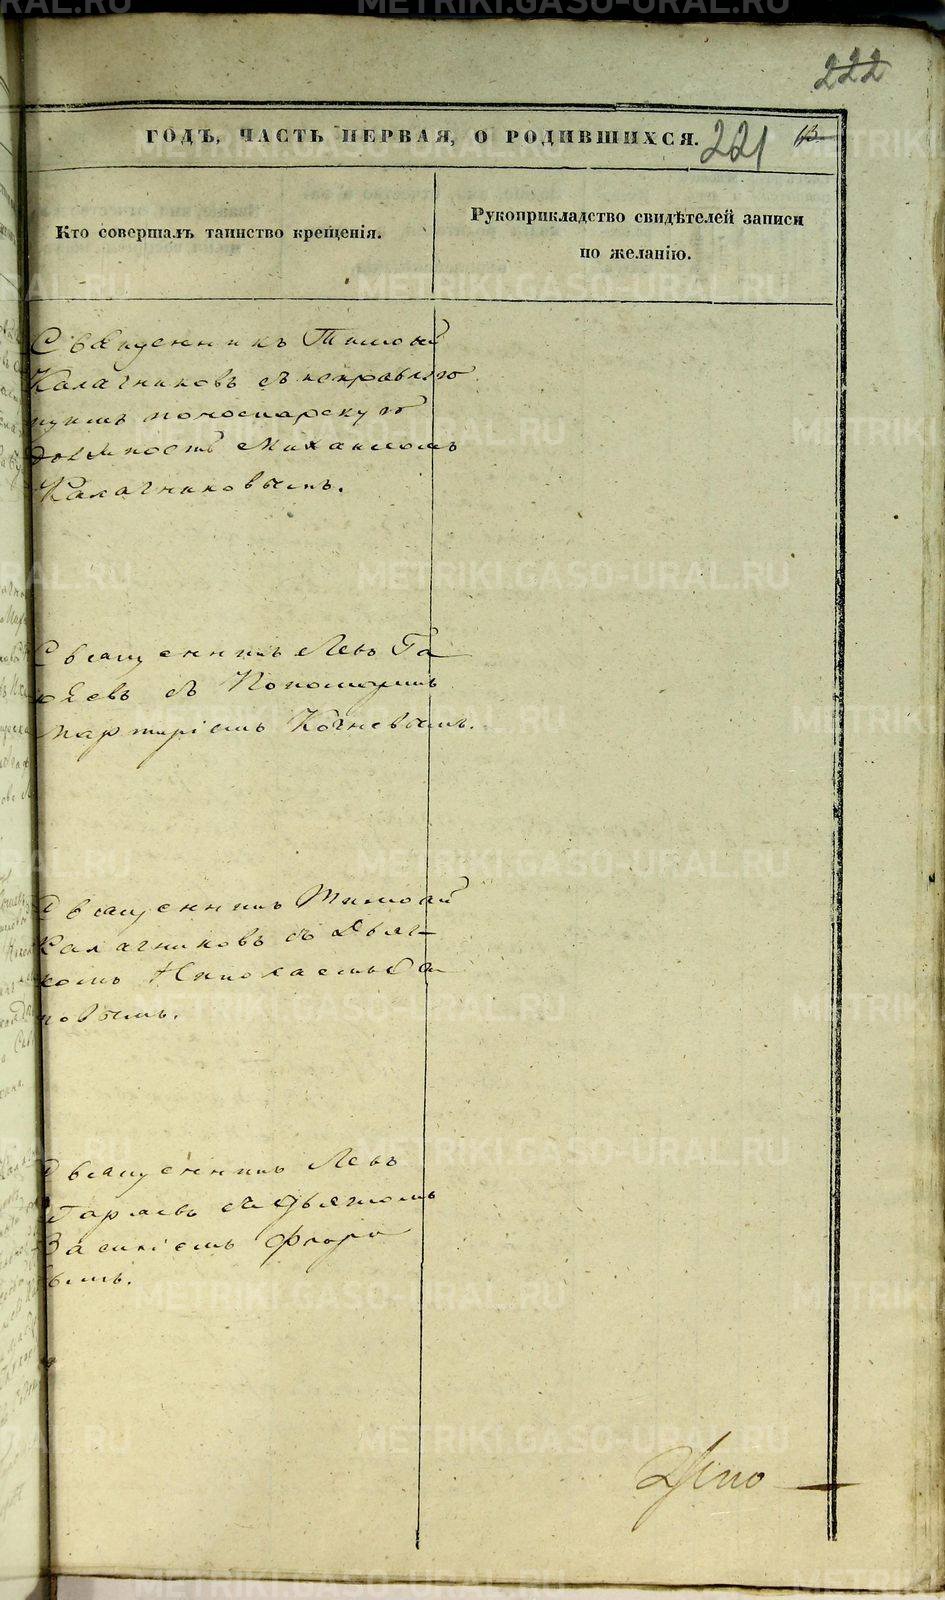 222
ГОДЪ, ЧАСТЬ ПЕРВАЯ, О РОДИВШИХСЯ. 221 13
Кто совершалъ таинство крещенія.
Рукоприкладство свидѣтелей записи
по желанію.
Священникъ Тимофей
Калачниковъ съ исправляю
щимъ пономарскую
должность Михаиломъ
Калачниковымъ.
Священникъ Левъ Га
ряевъ съ Пономаремъ
Мартиріемъ Кочневымъ.
Священникъ Тимофей
Калачниковъ съ Дьяч-
комъ Николаемъ
новымъ.
Священникъ Левъ
Гаряевъ съ Дьячкомъ
Василіемъ Флоро
вымъ.
METRIKI.GASO-URAL.RU